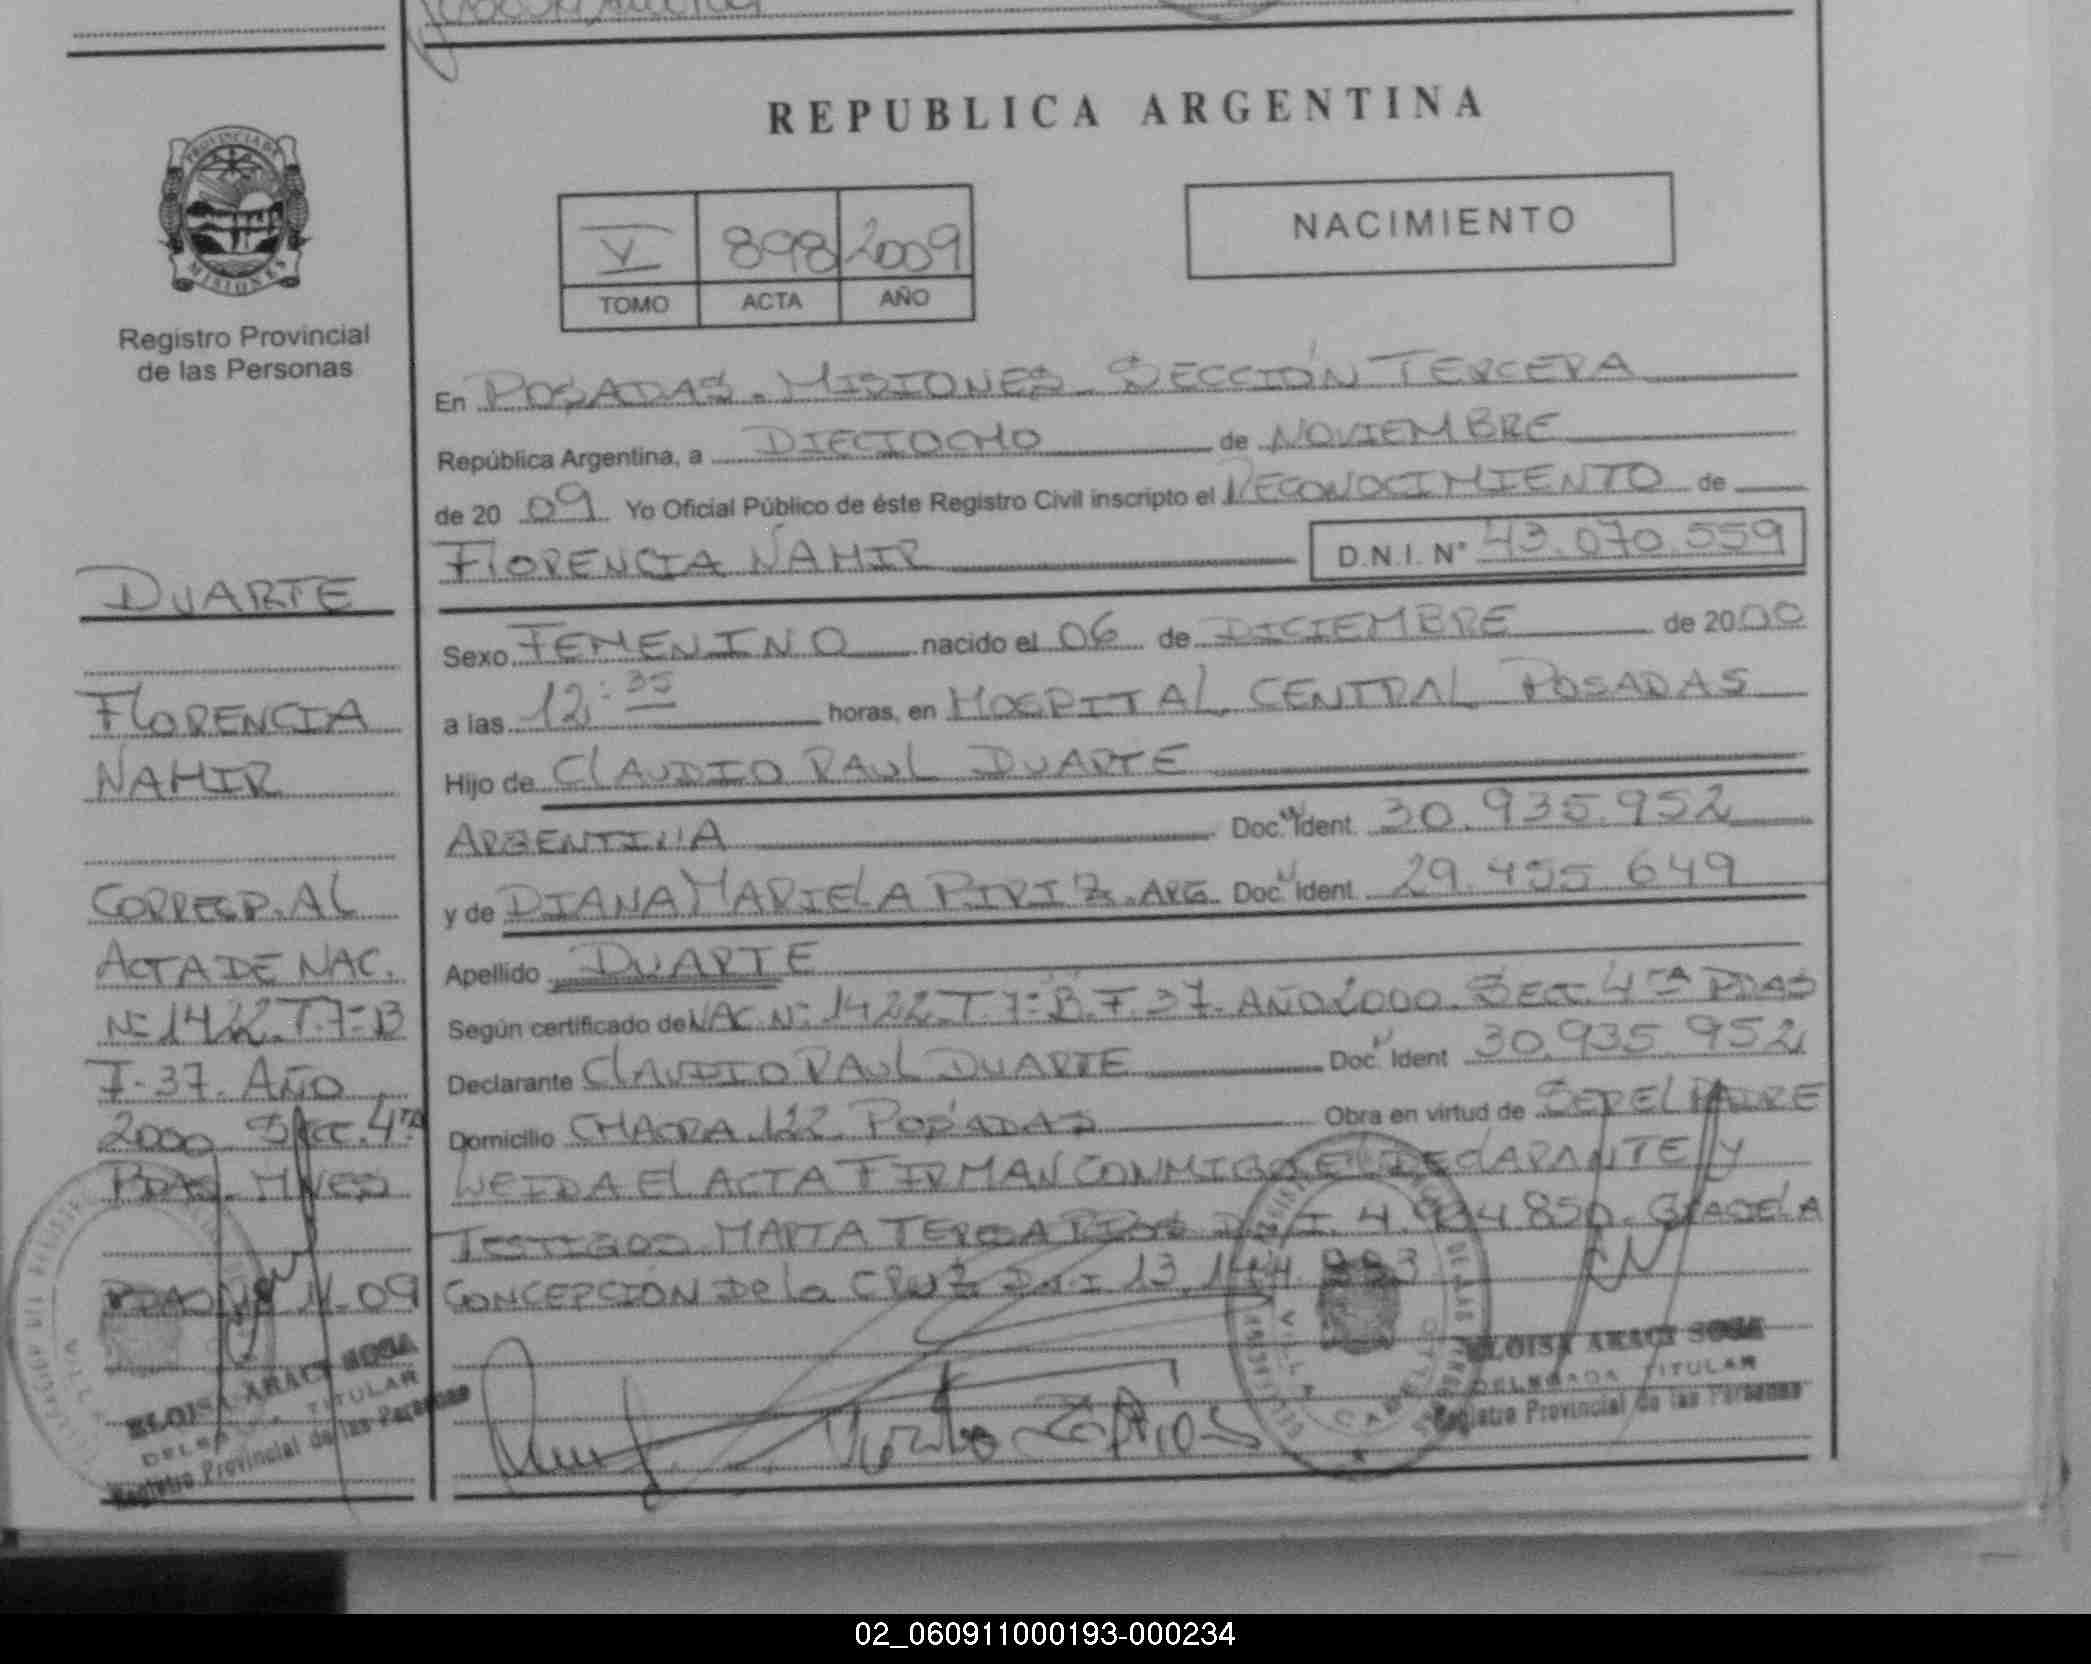 REPUBLICA ARGENTINA
NACIMIENTO
V 898 2009
TOMO ACTA AÑO
PROVINCIA DE
MISIONES
Registro Provincial
de las Personas
DUARTE
FLORENCIA
NAHIR
CORRESP. AL
ACTA DE NAC.
Nº 1422. T. 7º B
F. 37. AÑO
2000 SECC. 4ta
PDAS. MNES
PDAS 11.09
ELOISA ARACI SOSA
DELEGADA TITULAR
Registro Provincial de las Personas
En POSADAS - MISIONES - SECCIÓN TERCERA
República Argentina, a DIECIOCHO de NOVIEMBRE
de 20 09 Yo Oficial Público de éste Registro Civil inscripto el RECONOCIMIENTO de
FLORENCIA NAHIR D.N.I. Nº 43.070.559
Sexo FEMENINO nacido el 06 de DICIEMBRE de 2000
a las 12:35 horas, en HOSPITAL CENTRAL POSADAS
Hijo de CLAUDIO RAUL DUARTE
ARGENTINA Doc. Ident. 30.935.952
y de DIANA MARIELA PIRIZ. ARG. Doc. Ident. 29.455.649
Apellido DUARTE
Según certificado de NAC. Nº 1422. T. 7º B. F. 37. AÑO 2000. SECC. 4TA PDAS
Declarante CLAUDIO RAUL DUARTE Doc. Ident 30.935.952
Domicilio CHACRA 122. POSADAS Obra en virtud de SER EL PADRE
LEIDA EL ACTA FIRMAN CONMIGO EL DECLARANTE Y
TESTIGOS MARTA TERESA RIOS D.N.I. 4.904.850. GRACIELA
CONCEPCIÓN De la CRUZ D.N.I 13.144.883
ELOISA ARACI SOSA
DELEGADA TITULAR
Registro Provincial de las Personas
02_060911000193-000234